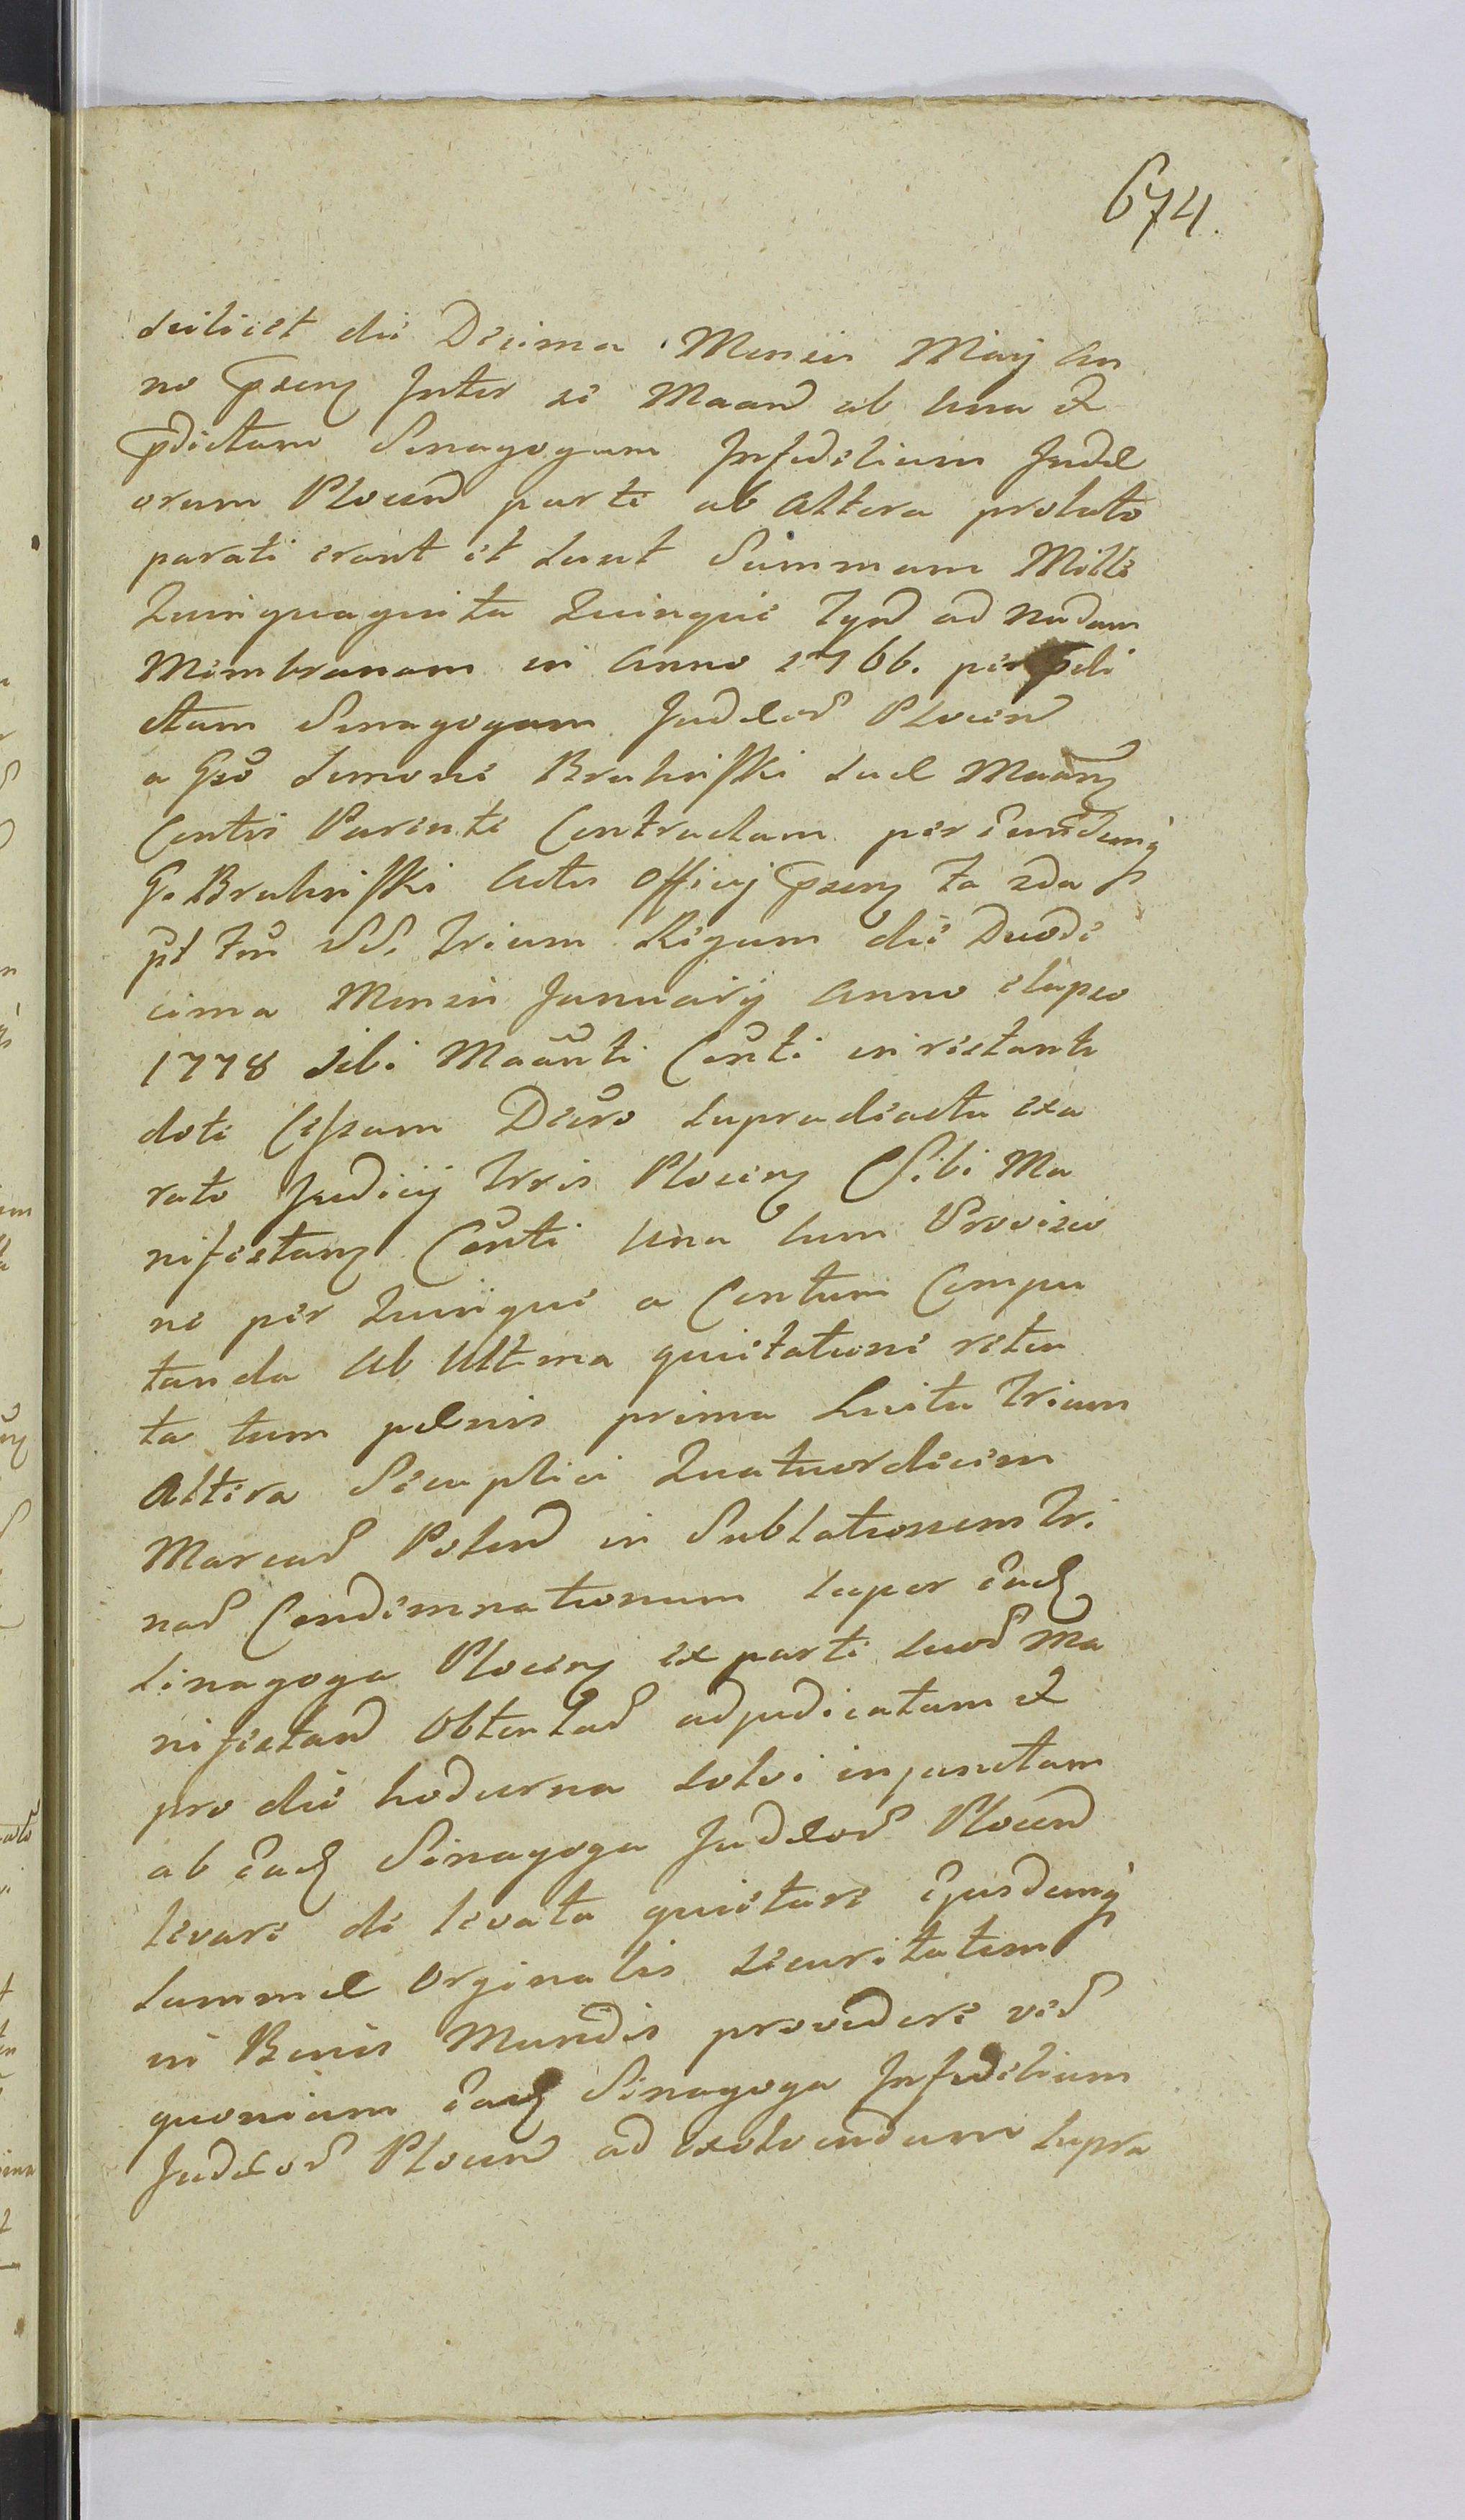 674.
scilicet die Decima Mensis Maij An
no psens Inter se Maand ab una et
pdictam Sinagogam Infidelium Judæ
orum Plocen parte ab altera prolato
parati erant et sunt Summam Mille
Quinquaginta Quinque Tynf ad nudam
Membranam in Anno 1766. per pdi
ctam Sinagogam Judæor Plocen
a Gso Simone Brahiński suæ Maans
Contis Parente Contractam per eundemq
G. Brahiński Actis Officij psens
pt SS. Trium Regum die Duode
cima Mensis Januarij Anno elapso
1778 sibi Maanti Conti in restante
dote Cessam Decro supradicta exa
rato Judicij Trris Plocens Sibi Ma
nifestans Conti una cum Provisio
ne per Quinque a Centum Compu
tanda ab Ultima quietatione reten
ta tum pænis prima Luita trium
altera Sexuplici Quatuordecim
Marcar Polon in Sublationem Tri
nar Condemnationum super ead
Sinagoga Plocens ex parte suor Ma
nifestan Obtentar adjudicatam et
pro die hodierna solvi injunctam
ab ead Sinagoga Judæor Plocen
levare de levata quietare Ejusdemq
Summæ Orginalis securitatem
in Bonis Mundis providere ver
quoniam ead Sinagoga Infidelium
Judæor Plocen ad exolvendum supra